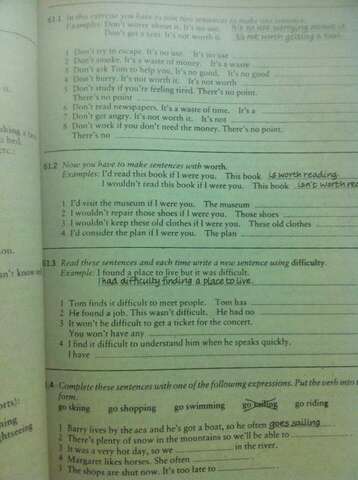 61.1 In this exercise you have to join two sentences to make one sentence.
Examples: Don't worry about it. It's no use. It's no use worrying about it.
Don't get a taxi. It's not worth it. It's not worth getting a taxi.
1 Don't try to escape. It's no use. It's no use
2 Don't smoke. It's a waste of money. It's a waste
3 Don't ask Tom to help you. It's no good. It's no good
4 Don't hurry. It's not worth it. It's not
5 Don't study if you're feeling tired. There's no point.
There's no point
6 Don't read newspapers. It's a waste of time. It's a
7 Don't get angry. It's not worth it. It's not
8 Don't work if you don't need the money. There's no point.
There's no
61.2 Now you have to make sentences with worth.
Examples: I'd read this book if I were you. This book is worth reading.
I wouldn't read this book if I were you. This book isn't worth rea
1 I'd visit the museum if I were you. The museum
2 I wouldn't repair those shoes if I were you. Those shoes
3 I wouldn't keep these old clothes if I were you. These old clothes
4 I'd consider the plan if I were you. The plan
61.3 Read these sentences and each time write a new sentence using difficulty.
Example: I found a place to live but it was difficult.
I had difficulty finding a place to live.
1 Tom finds it difficult to meet people. Tom has
2 He found a job. This wasn't difficult. He had no
3 It won't be difficult to get a ticket for the concert.
You won't have any
4 I find it difficult to understand him when he speaks quickly.
I have
.4 Complete these sentences with one of the following expressions. Put the verb into t
form.
go skiing go shopping go swimming go sailing go riding
1 Barry lives by the sea and he's got a boat, so he often goes sailing
2 There's plenty of snow in the mountains so we'll be able to
3 It was a very hot day, so we in the river.
4 Margaret likes horses. She often
5 The shops are shut now. It's too late to